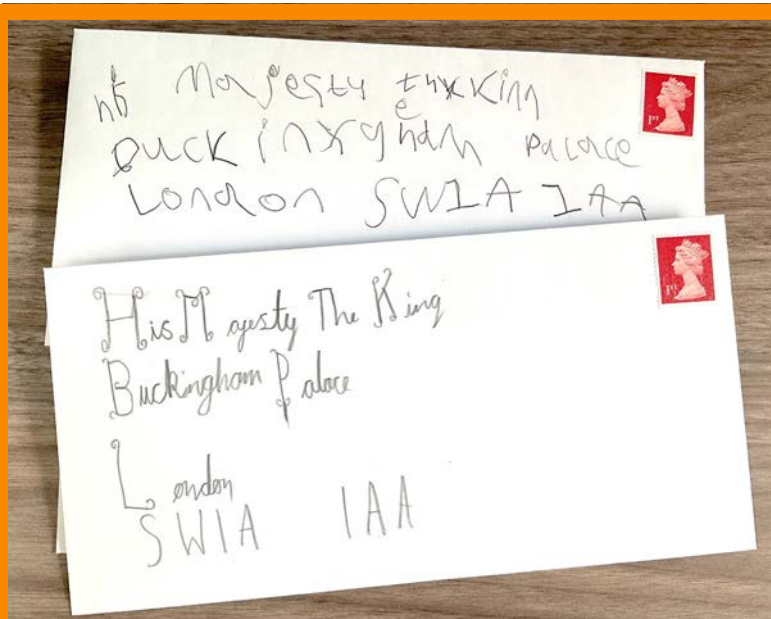 Majesty the King
Buckingham Palace
London SW1A 1AA
1ST
His Majesty The King
Buckingham Palace
London
SW1A 1AA
1ST